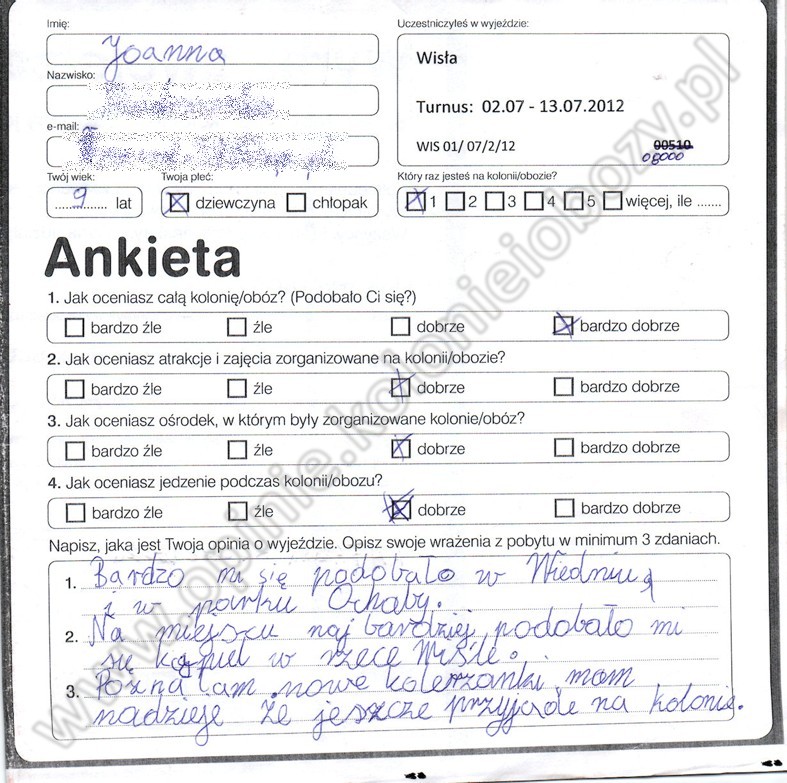 Imię:
Uczestniczyłeś w wyjeździe:
Joanna
Wisła
Nazwisko:
Turnus: 02.07 - 13.07.2012
e-mail:
WIS 01/ 07/2/12
00510
06000
Twój wiek:
Twoja płeć:
Który raz jesteś na kolonii/obozie?
9 lat
dziewczyna
chłopak
1 2 3 4 5 więcej, ile .......
Ankieta
1. Jak oceniasz całą kolonię/obóz? (Podobało Ci się?)
bardzo źle źle dobrze bardzo dobrze
2. Jak oceniasz atrakcje i zajęcia zorganizowane na kolonii/obozie?
bardzo źle źle dobrze bardzo dobrze
3. Jak oceniasz ośrodek, w którym były zorganizowane kolonie/obóz?
bardzo źle źle dobrze bardzo dobrze
4. Jak oceniasz jedzenie podczas kolonii/obozu?
bardzo źle źle dobrze bardzo dobrze
Napisz, jaka jest Twoja opinia o wyjeździe. Opisz swoje wrażenia z pobytu w minimum 3 zdaniach.
1. Bardzo mi się podobało w Wiedniu
i w parku Ochaby.
2. Na miejscu naj bardziej podobało mi
się kąpiel w rzece Wiśle.
3. Poznałam nowe koleżanki, mam
nadzieje że jeszcze przyjade na kolonie.
www.opinie.kolonieiobozy.pl